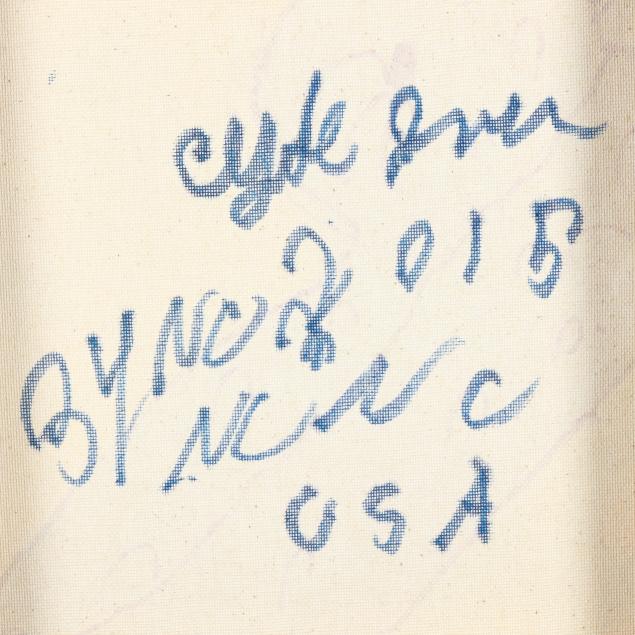 Clyde Jones
2015
BYNUM
BYNUM NC
USA